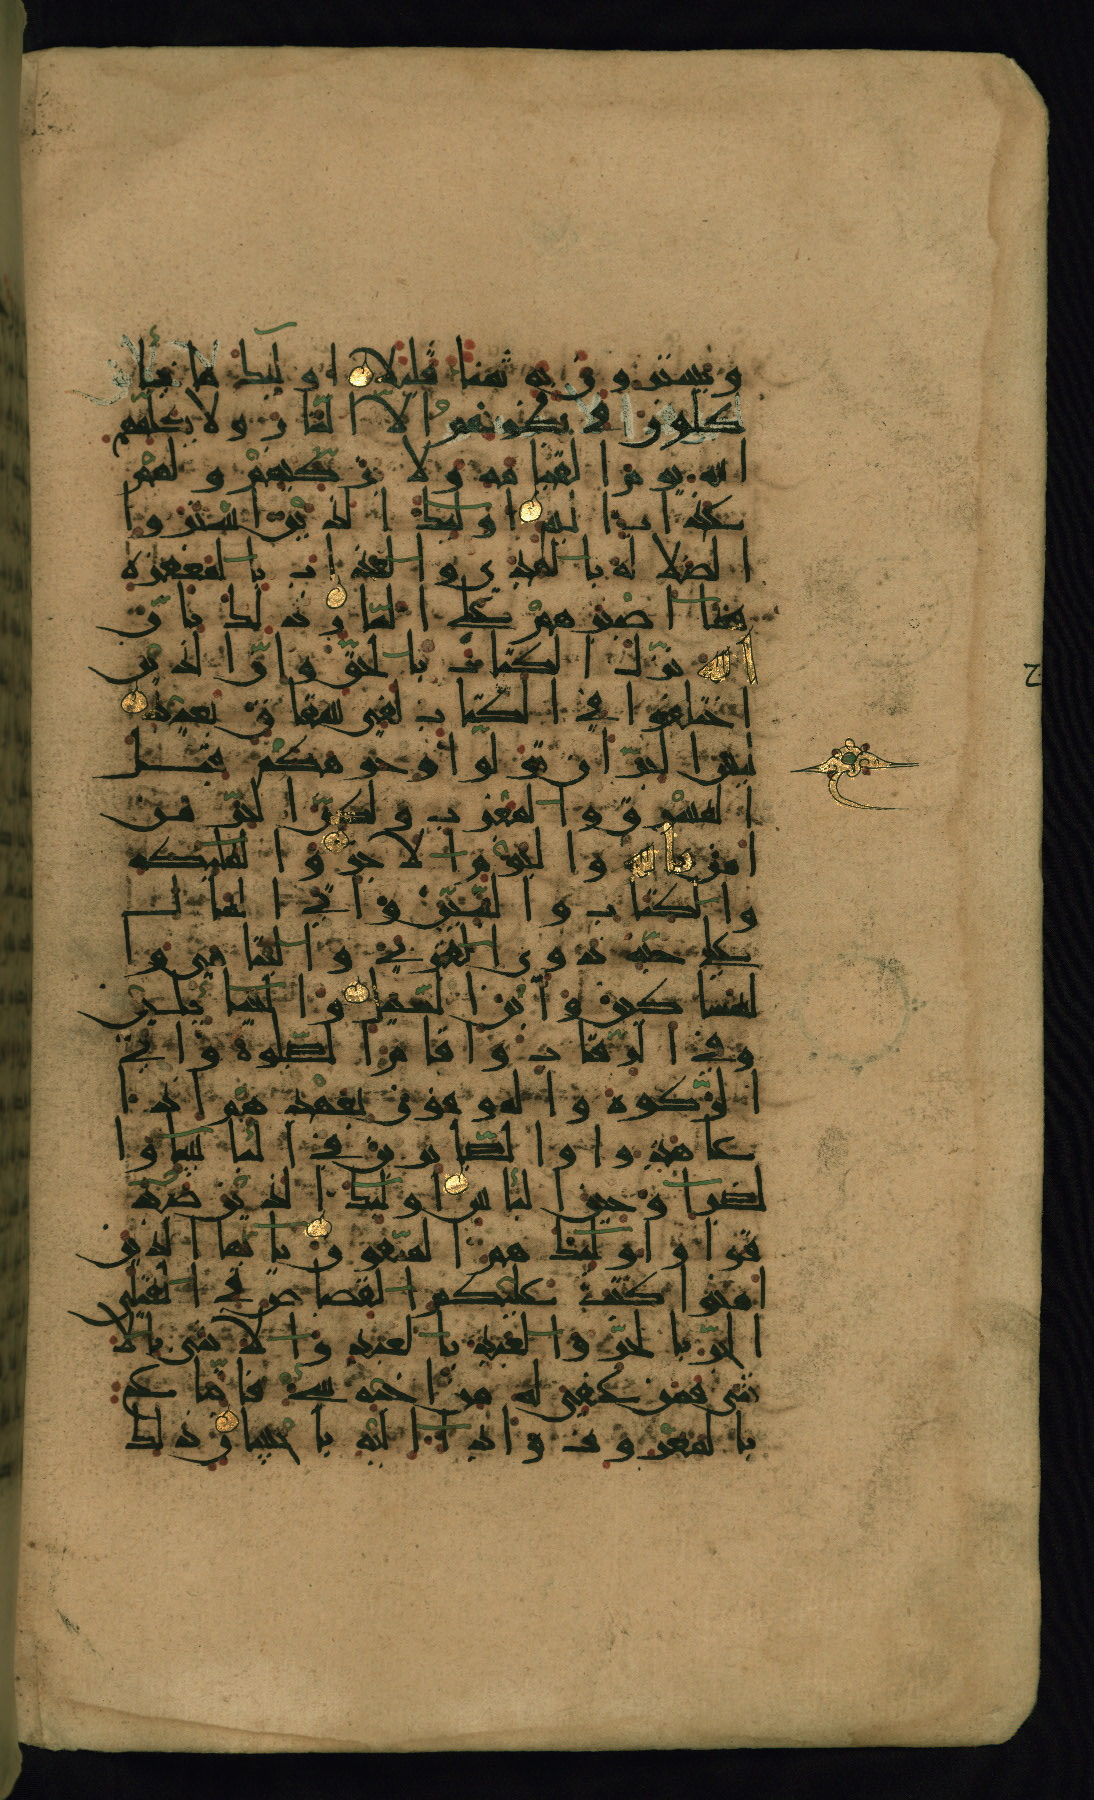 ويشترون به ثمنا قليلا اوليك ما يا
كلون في بطونهم الا النار ولا يكلمهم
الله يوم القيامه ولا يزكيهم ولهم
عذاب اليم اوليك الذين اشتروا
الضلاله بالهدى والعذاب بالمغفره
فما اصبرهم على النار ذلك بان
الله نزل الكتاب بالحق وان الذين
اختلفوا في الكتاب لفي شقاق بعيد
ليس البر ان تولوا وجوهكم قبل
المشرق والمغرب ولكن البر من
امن بالله واليوم الاخر والمليكه
والكتاب والنبين واتى المال
على حبه ذوى القربى واليتامى وا
لمساكين وابن السبيل والسايلين
وفي الرقاب واقام الصلوه واتى
الزكوه والموفون بعهدهم اذا
عاهدوا والصابرين في الباسا وا
لضرا وحين الباس اوليك الذين صد
قوا واوليك هم المتقون يايها الذين
امنوا كتب عليكم القصاص في القتلى
الحر بالحر والعبد بالعبد والانثى بالا
نثى فمن عفي له من اخيه شي فاتباع
بالمعروف وادا اليه باحسان ذلك